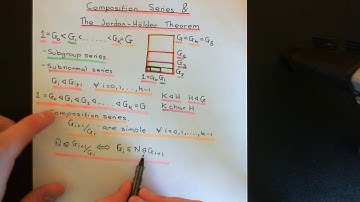 Composition Series &
The Jordan-Hölder Theorem
1 = G₀ < G₁ < ...... < Gₖ = G
G = Gₖ = G₅
- Subgroup series
G₄
- Subnormal series
G₃
G₂
Gᵢ ◁ Gᵢ₊₁ ∀ i = 0, 1, ..., k-1
1 = G₀ G₁
K ◁ H H ◁ G
1 = G₀ ◁ G₁ ◁ G₂ ◁ ...... ◁ Gₖ = G
K char H
- Composition series
Gᵢ₊₁/Gᵢ are simple ∀ i = 0, 1, ..., k-1
N̄ ⊴ Gᵢ₊₁/Gᵢ ⇔ Gᵢ ≤ N ⊴ Gᵢ₊₁